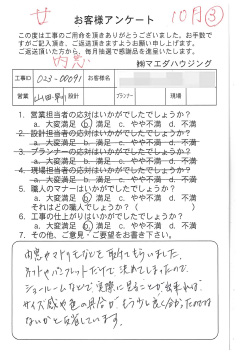 廿 10月③
お客様アンケート
この度は工事のご用命を頂きありがとうございました。お手数で
すがご記入頂き、ご返送頂きますようお願い申し上げます。
ご返送頂いた方から、毎月抽選で感謝品を進呈いたします。
内窓
㈱マエダハウジング
工事ID 023-00091 お客様名
営業 山田 設計 プランナー 現場
1. 営業担当者の応対はいかがでしたでしょうか?
a. 大変満足 b. 満足 c. やや不満 d. 不満
2. 設計担当者の応対はいかがでしたでしょうか?
a. 大変満足 b. 満足 c. やや不満 d. 不満
3. プランナーの応対はいかがでしたでしょうか?
a. 大変満足 b. 満足 c. やや不満 d. 不満
4. 現場担当者の応対はいかがでしたでしょうか?
a. 大変満足 b. 満足 c. やや不満 d. 不満
5. 職人のマナーはいかがでしたでしょうか?
a. 大変満足 b. 満足 c. やや不満 d. 不満
それはどの職人でしょうか? ( )
6. 工事の仕上がりはいかがでしたでしょうか?
a. 大変満足 b. 満足 c. やや不満 d. 不満
7. その他、ご意見・ご要望をお書き下さい。
内窓や手すりなどを取付てもらいました。
ネットやパンフレットだけで決めてしまったので、
ショールームなどで実際に見ることが出来れば、
サイズ感や色の具合が もう少し良く分かったのでは
ないかと反省しています。